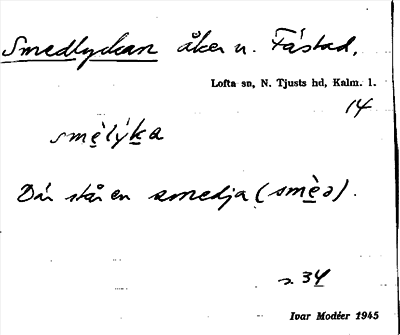 Smedlyckan åker n. Fåstad,
Lofta sn, N. Tjusts hd, Kalm. l.
14
smèlýka
Där står en smedja (smèa).
s. 34
Ivar Modéer 1945